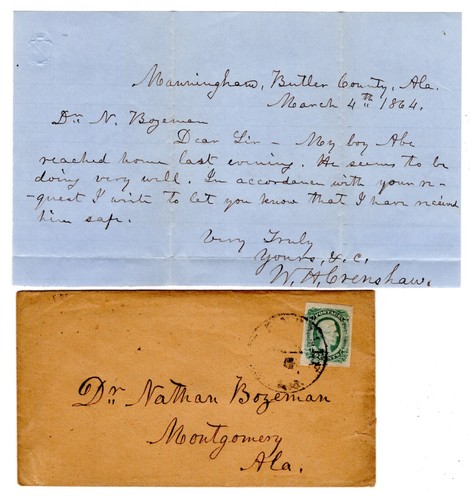 Manningham, Butler County, Ala.
March 4th 1864.
Dr. N. Bozeman
Dear Sir – My boy Abe
reached home last evening. He seems to be
doing very well. In accordance with your re-
-quest I write to let you know that I have received
him safe.
Very Truly
Yours, &. C.
W. H. Crenshaw.
Dr. Nathan Bozeman
Montgomery
Ala.